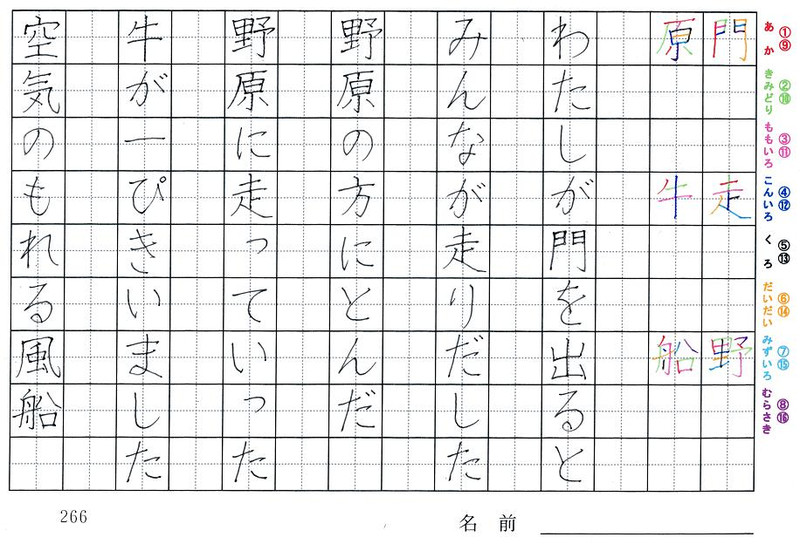 ①⑨ あか
②⑩ きみどり
③⑪ ももいろ
④⑫ こんいろ
⑤⑬ くろ
⑥⑭ だいだい
⑦⑮ みずいろ
⑧⑯ むらさき
門走野
原牛船
わたしが門を出ると
みんなが走りだした
野原の方にとんだ
野原に走っていった
牛が一ぴきいました
空気のもれる風船
266
名前